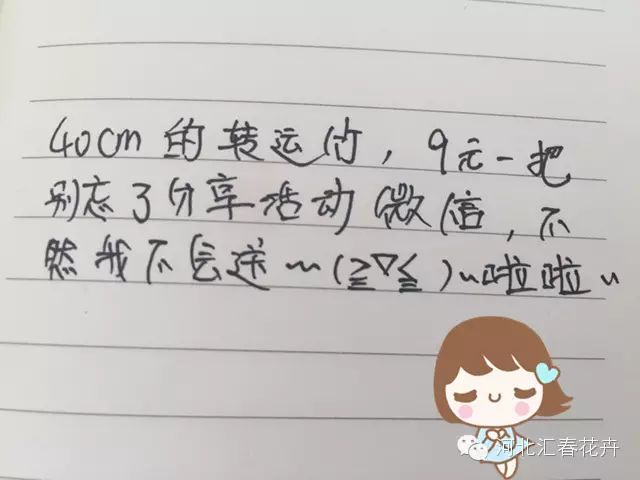 40cm的转运竹，9元一把
别忘了分享活动微信，不
然我不会送~(≧▽≦)~啦啦~
河北汇春花卉